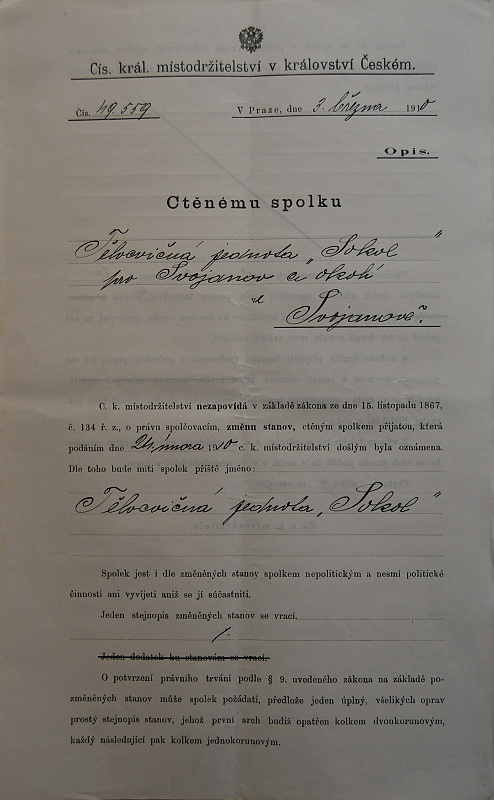 Cís. král. místodržitelství v království Českém.
Čís. 49.559 V Praze, dne 3. března 1910
Opis.
Ctěnému spolku
Tělocvičná jednota „Sokol"
pro Svojanov a okolí
v
Svojanově.
C. k. místodržitelství nezapovídá v základě zákona ze dne 15. listopadu 1867,
č. 134 ř. z., o právu spolčovacím, změnu stanov, ctěným spolkem přijatou, která
podáním dne 24. února 1910 c. k. místodržitelství došlým byla oznámena.
Dle toho bude míti spolek příště jméno:
Tělocvičná jednota „Sokol"
Spolek jest i dle změněných stanov spolkem nepolitickým a nesmí politické
činnosti ani vyvíjeti aniž se jí súčastniti.
Jeden stejnopis změněných stanov se vrací.
/.
Jeden dodatek ku stanovám se vrací.
O potvrzení právního trvání podle § 9. uvedeného zákona na základě po-
změněných stanov může spolek požádati, předlože jeden úplný, všelikých oprav
prostý stejnopis stanov, jehož první arch budiž opatřen kolkem dvoukorunovým,
každý následující pak kolkem jednokorunovým.